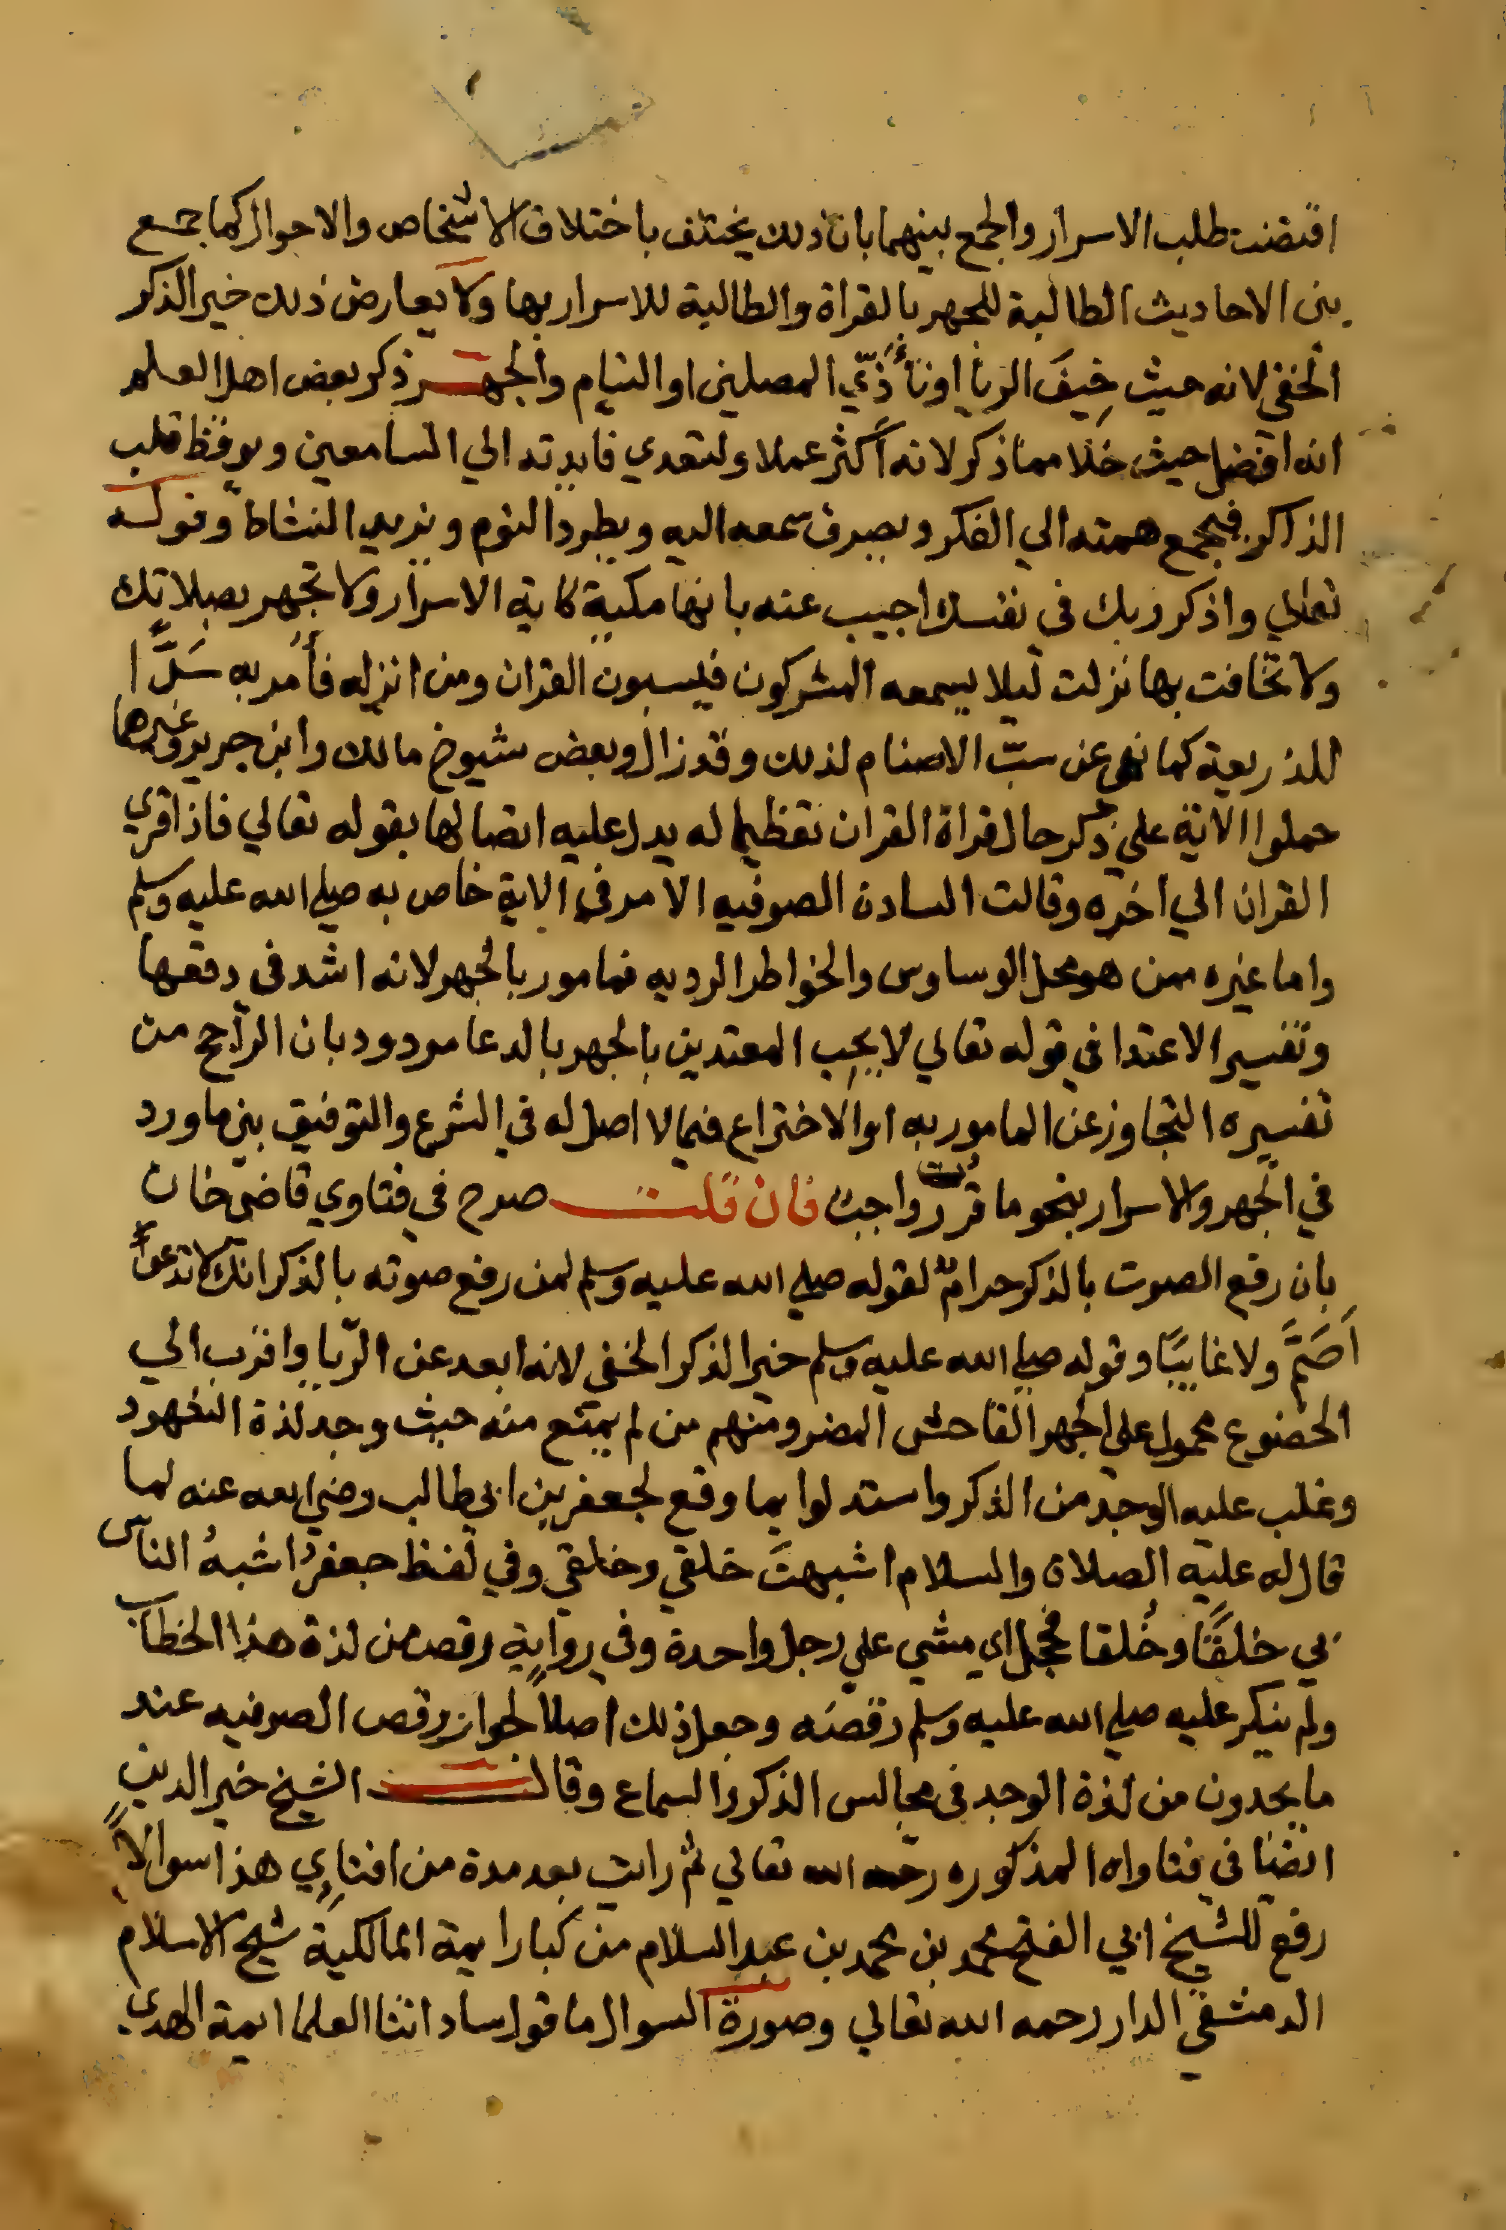 اقتضت طلب الاسرار والجمع بينهما بان ذلك يختلف باختلاف الاشخاص والاحوال كما جمع
بين الاحاديث الطالبة للجهر بالقراة والطالبة للاسرار بها ولا يعارض ذلك خير الذكر
الخفي لانه حيث خِيفَ الريا او تأَذّي المصلين او النيام والجهر ذكر بعض اهل العلم
انه افضل حيث خلا مما ذكر لانه اكثر عملا ولتعدي فايدته الي السامعين ويوقظ قلب
الذاكر فيجمع همته الي الفكر ويصرف سمعه اليه ويطرد النوم ويزيد النشاط وقوله
تعالي واذكر ربك في نفسك اجيب عنه بانها مكية كاية الاسرار ولا تجهر بصلاتك
ولا تخافت بها نزلت ليلا يسمعه المشركون فيسبون القران ومن انزله فأُمر به سَدًّا
للذريعة كما نهي عن سبّ الاصنام لذلك وقد زال وبعض شيوخ مالك وابن جرير وغيرهما
حملوا الاية علي ذكر حال قراة القران تعظيما له يدل عليه اتصالها بقوله تعالي فاذا قري
القران الي اخره وقالت السادة الصوفيه الامر في الاية خاص به صلي الله عليه وسلم
واما غيره ممن هو محل الوساوس والخواطر الرديه فمامور بالجهر لانه اشد في دفعها
وتفسير الاعتدا في قوله تعالي لا يحب المعتدين بالجهر بالدعا مردود بان الراجح من
تفسيره التجاوز عن المامور به او الاختراع فيما لا اصل له في الشرع والتوفيق بين ما ورد
في الجهر والاسرار بنحو ما قررت واجب فان قلت صرح في فتاوي قاضي خان
بان رفع الصوت بالذكر حرامٌ لقوله صلي الله عليه وسلم لمن رفع صوته بالذكر انك لا تدعوا
اَصَمَّ ولا غايبًا وقوله صلي الله عليه وسلم خير الذكر الخفي لانه ابعد عن الريا واقرب الي
الخضوع محمول علي الجهر الفاحش المضر ومنهم من لم يمتنع منه حيث وجد لذة الشهود
وغلب عليه الوجد من الذكر واستدلوا بما وقع لجعفر بن ابي طالب رضي الله عنه لما
قال له عليه الصلاة والسلام اشبهتَ خلقي وخلقي وفي لفظ جعفرُ اشبهُ الناس
بي خَلقًا وخُلقا فحجل اي مشي علي رجل واحدة وفي رواية رقص من لذة هذا الخطاب
ولم ينكر عليه صلي الله عليه وسلم رقصه وجعل ذلك اصلاً لجواز رقص الصوفيه عند
ما يجدون من لذة الوجد في مجالس الذكر والسماع وقال الشيخ خير الدين
ايضًا في فتاواه المذكوره رحمه الله تعالي ثم رايت بعد مدة من افتاءي هذا سوالاً
رفع للشيخ ابي الفتح محمد بن محمد بن عبد السلام من كبار ايمة المالكية شيخ الاسلام
الدمشقي الدار رحمه الله تعالي وصورة السوال ما قول ساداتنا العلما ايمة الهدي